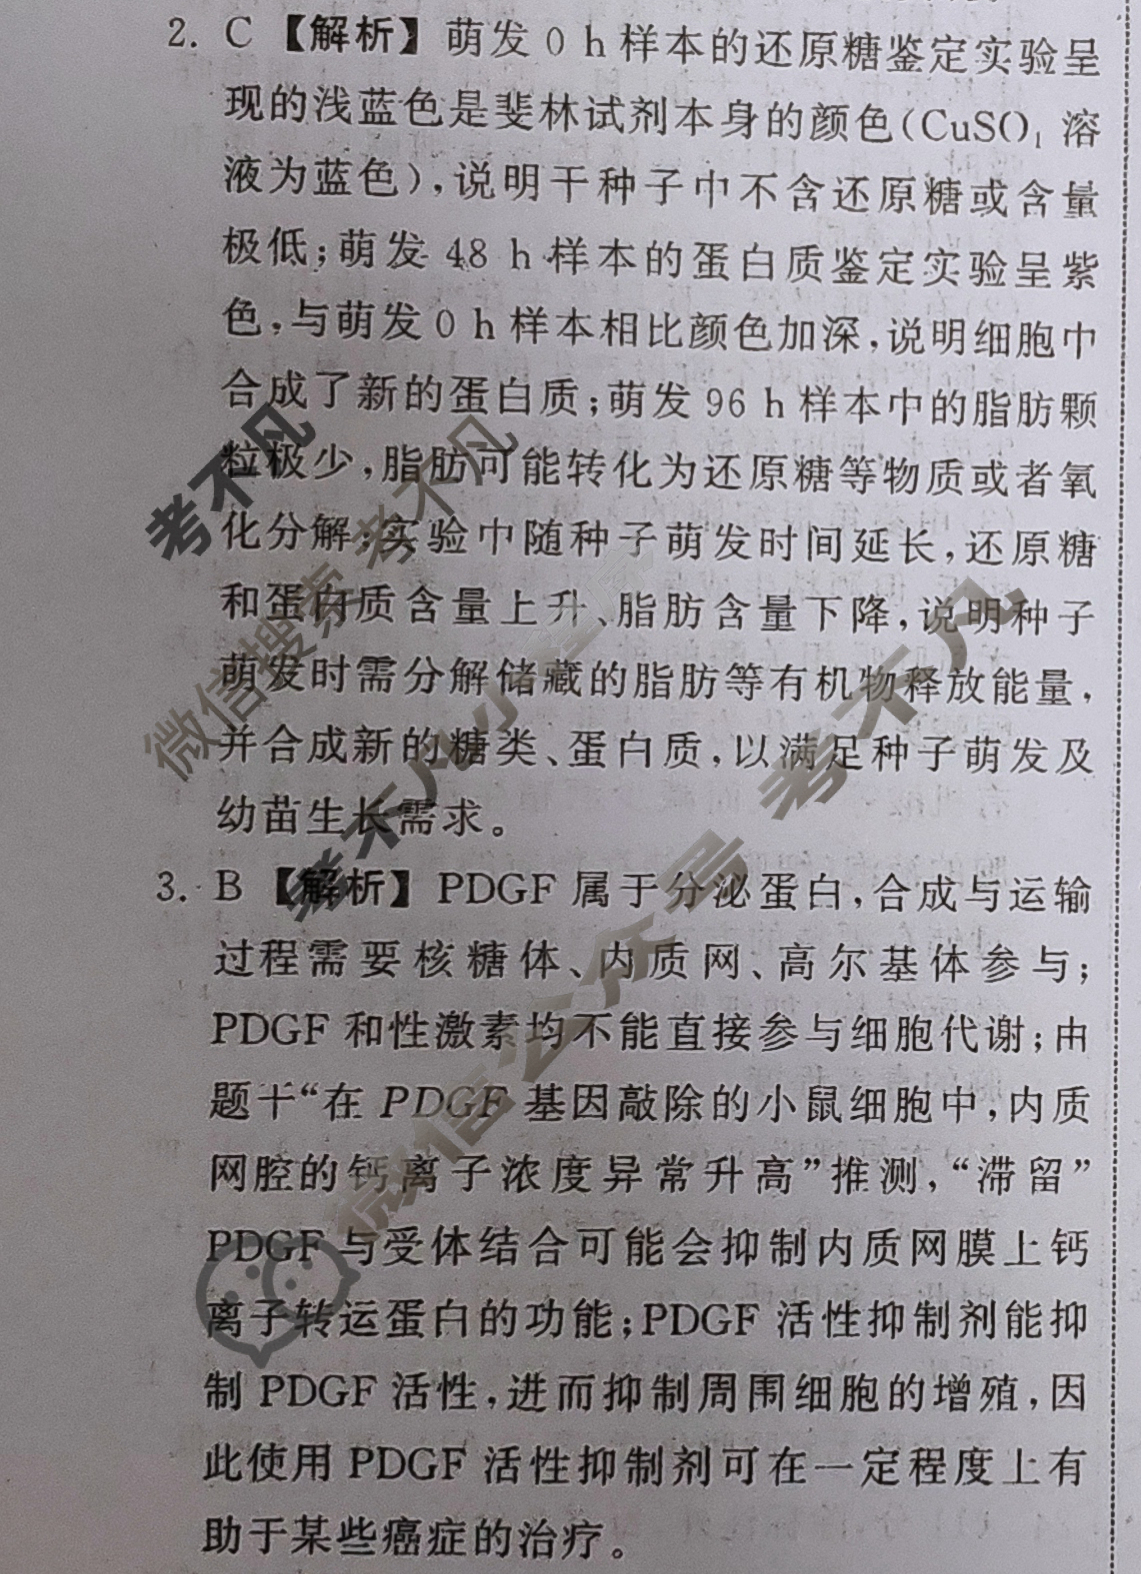 2. C 【解析】萌发 0 h 样本的还原糖鉴定实验呈
现的浅蓝色是斐林试剂本身的颜色(CuSO₄ 溶
液为蓝色),说明干种子中不含还原糖或含量
极低;萌发 48 h 样本的蛋白质鉴定实验呈紫
色,与萌发 0 h 样本相比颜色加深,说明细胞中
合成了新的蛋白质;萌发 96 h 样本中的脂肪颗
粒极少,脂肪可能转化为还原糖等物质或者氧
化分解;实验中随种子萌发时间延长,还原糖
和蛋白质含量上升、脂肪含量下降,说明种子
萌发时需分解储藏的脂肪等有机物释放能量,
并合成新的糖类、蛋白质,以满足种子萌发及
幼苗生长需求。
3. B 【解析】PDGF 属于分泌蛋白,合成与运输
过程需要核糖体、内质网、高尔基体参与;
PDGF 和性激素均不能直接参与细胞代谢;由
题干“在 PDGF 基因敲除的小鼠细胞中,内质
网腔的钙离子浓度异常升高”推测,“滞留”
PDGF 与受体结合可能会抑制内质网膜上钙
离子转运蛋白的功能;PDGF 活性抑制剂能抑
制 PDGF 活性,进而抑制周围细胞的增殖,因
此使用 PDGF 活性抑制剂可在一定程度上有
助于某些癌症的治疗。
考不凡
微信搜索 考不凡
考不凡小程序
微信公众号 考不凡